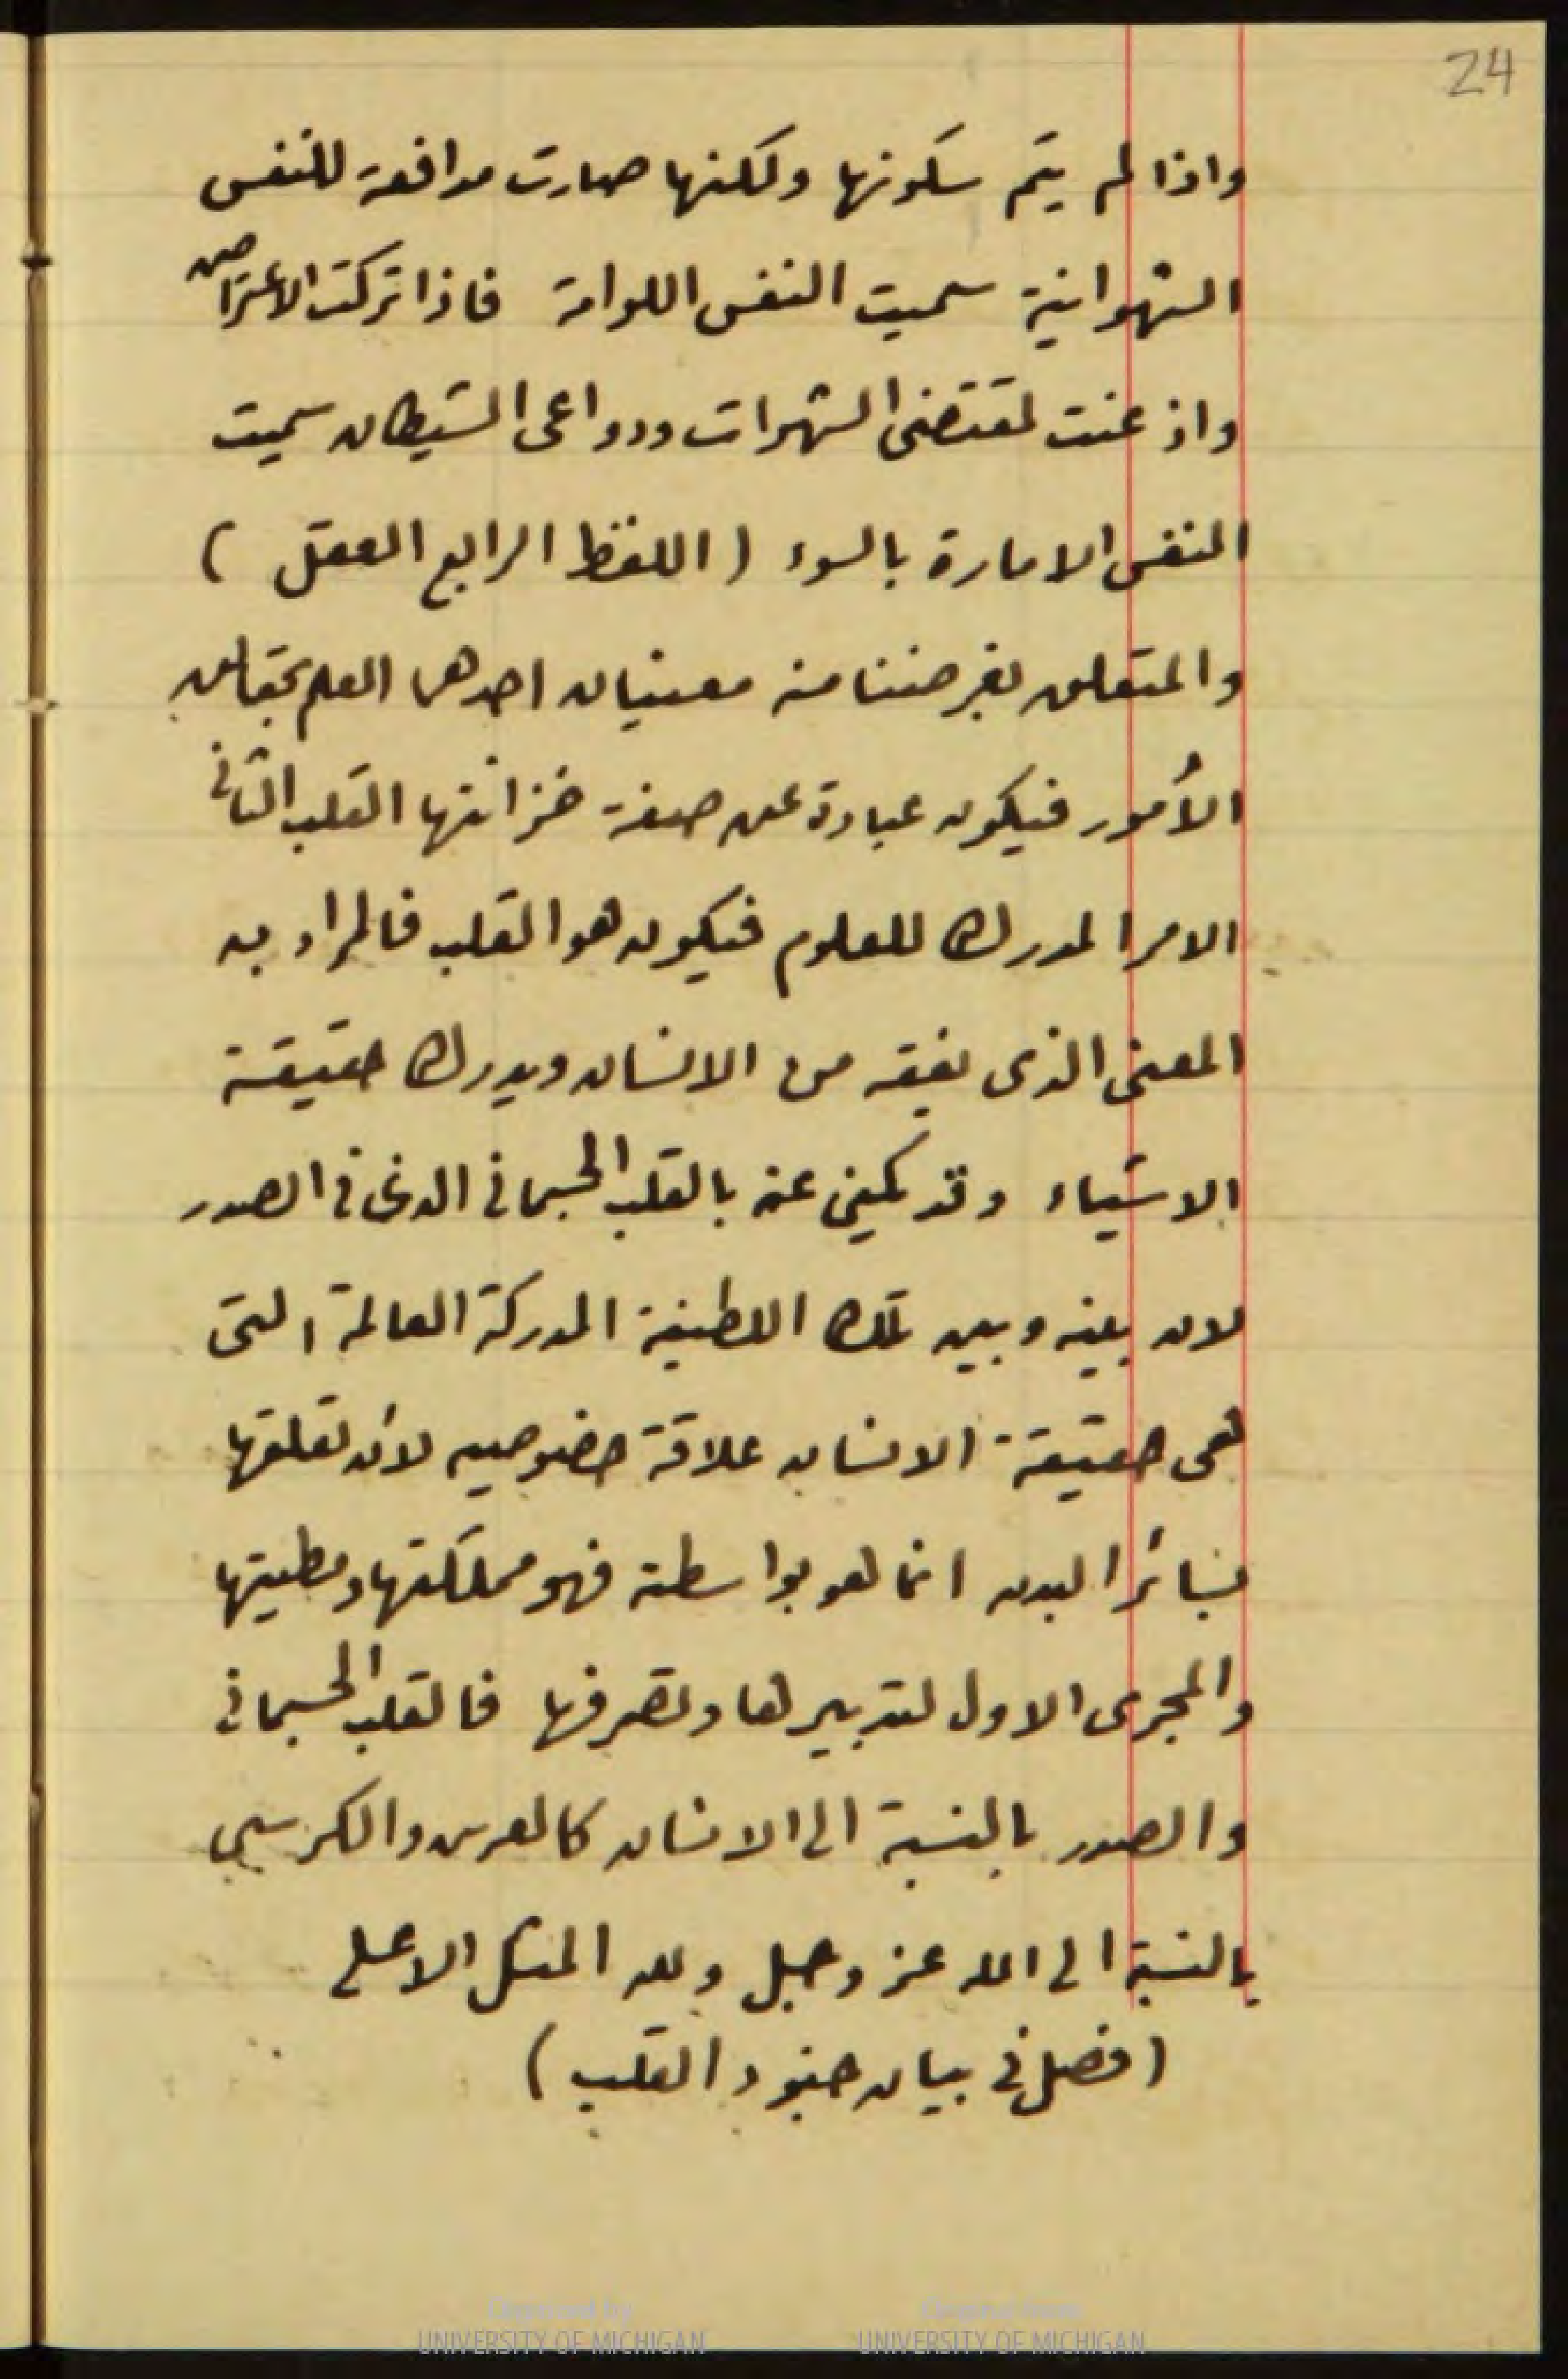 24
واذا لم يتم سكونها ولكنها صارت مدافعة للنفس
الشهوانية سميت النفس اللوامة فاذا تركت الاعتراض
واذعنت لمقتضى الشهوات ودواعى الشيطان سميت
النفس الامارة بالسوء (اللفظ الرابع العقل)
والمتعلق بغرضنا منه معنيان احدهما العلم بحقائق
الأمور فيكون عبارة عن صفة خزانتها القلب الثانى
الامر المدرك للعلوم فيكون هو القلب فالمراد به
المعنى الذى يفقه من الانسان ويدرك حقيقة
الاشياء وقد يكنى عنه بالقلب الجسمانى الذى فى الصدور
لان بينه وبين تلك اللطيفة المدركة العالمة التى
هى حقيقة الانسان علاقة خصوصيه لأن تعلقها
بسائر البدن انما هو بواسطته فهو مملكتها ومطيتها
والمجرى الاول لتدبيرها وتصرفها فالقلب الجسمانى
والصدور بالنسبة الى الانسان كالعرش والكرسي
بالنسبة الى الله عز وجل ولله المثل الاعلى
(فصل فى بيان جنود القلب)
Digitized by Original from
UNIVERSITY OF MICHIGAN UNIVERSITY OF MICHIGAN